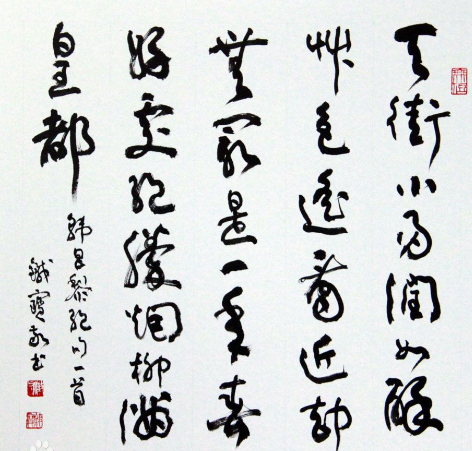 天街小雨潤如酥
艸色遙看近却
無最是一年春
好處絕勝烟柳滿
皇都
韓昌黎絕句一首
鐵寶敬书